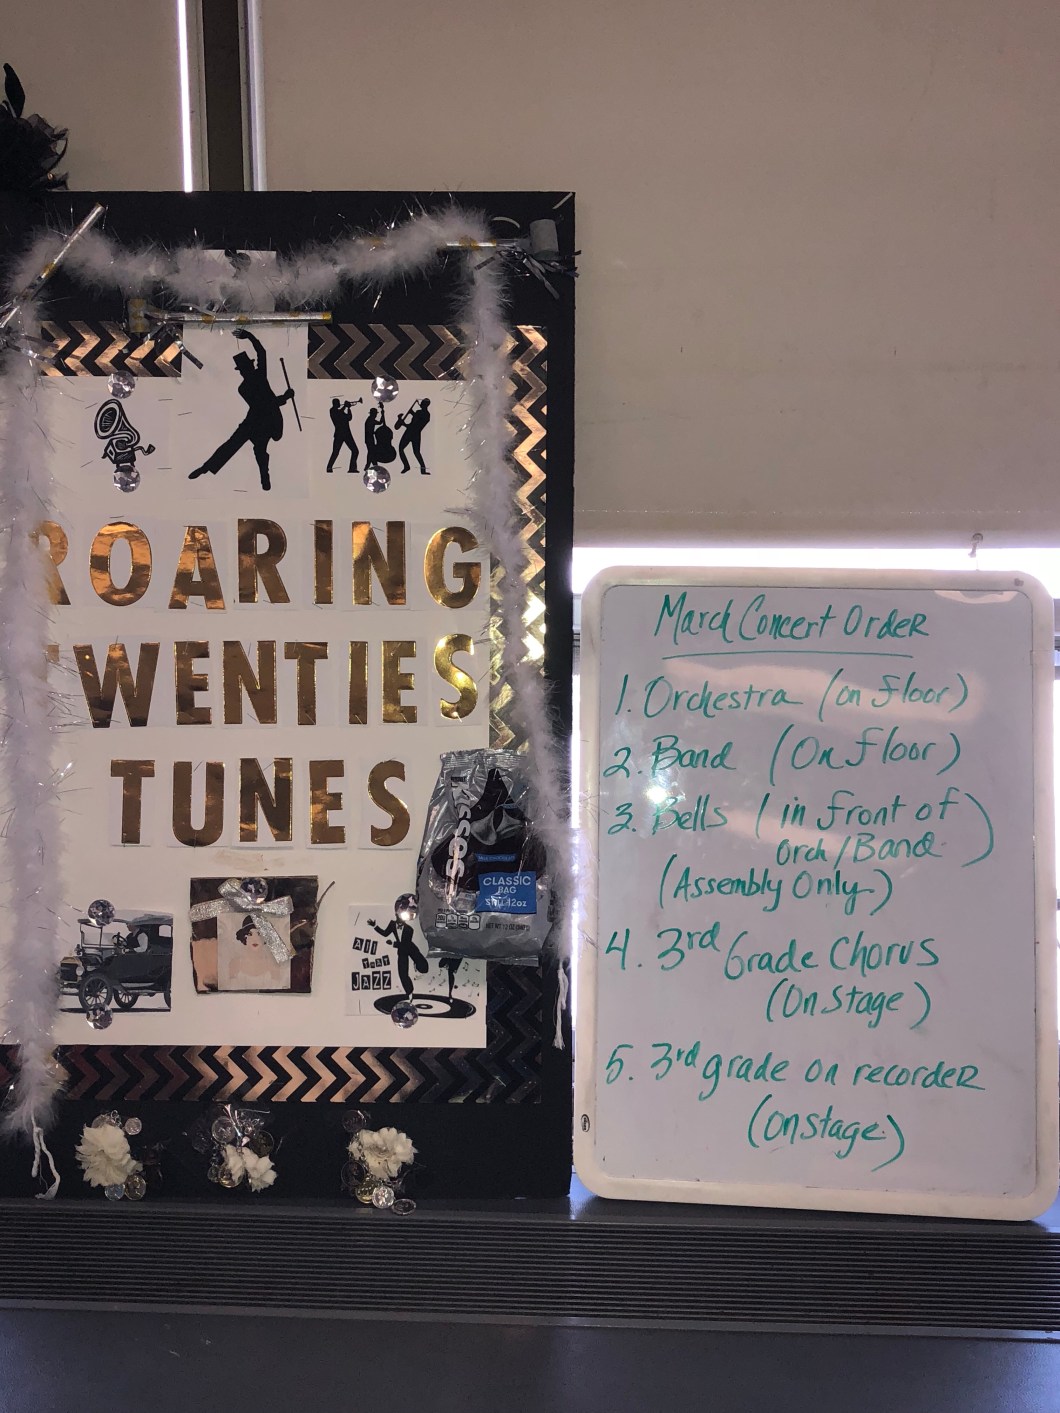 ROARING
TWENTIES
TUNES
KISSES
CLASSIC
BAG
STILL 12oz
ALL
THAT
JAZZ
March Concert Order
1. Orchestra (on floor)
2. Band (On floor)
3. Bells (in front of
Orch/Band)
(Assembly Only)
4. 3rd Grade Chorus
(On Stage)
5. 3rd grade on recorder
(on stage)